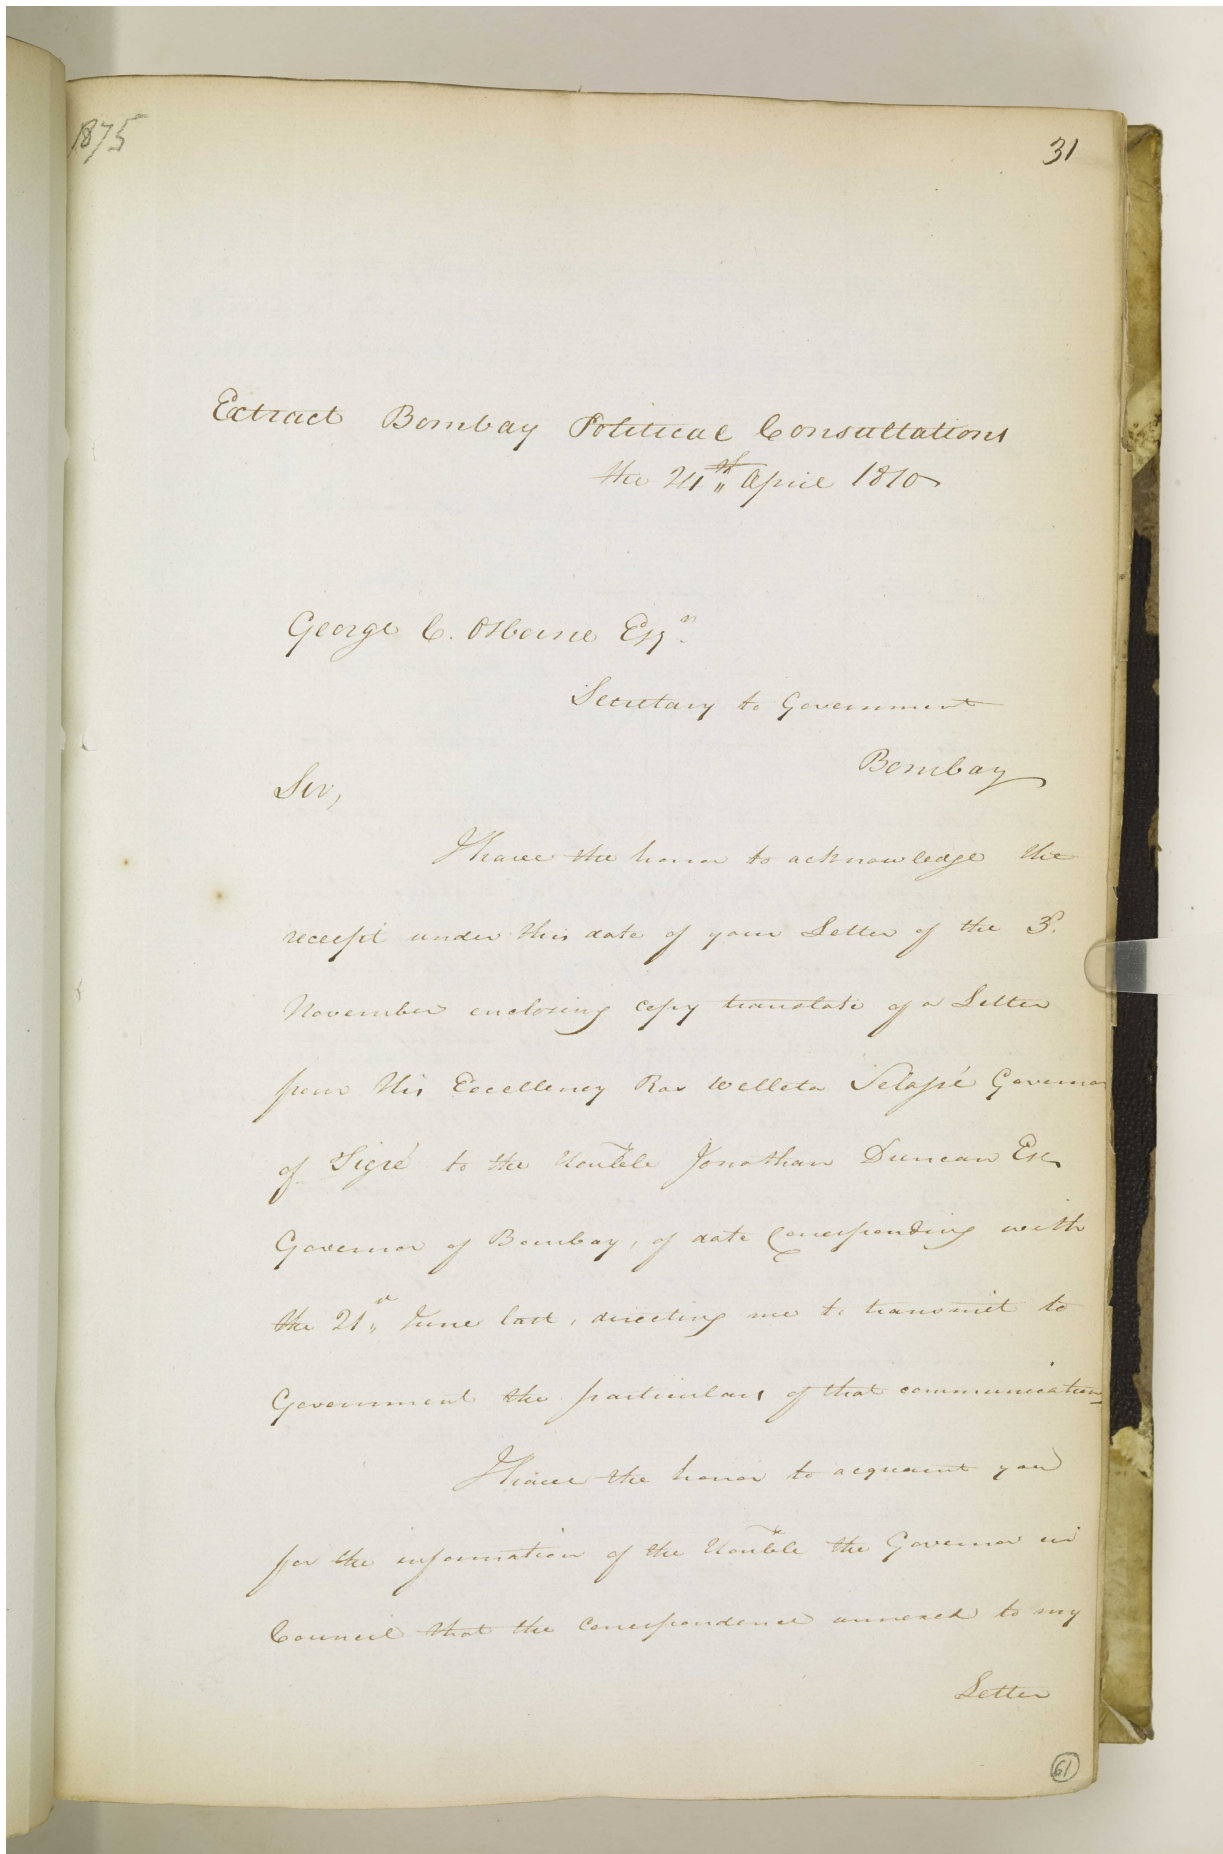 1875
31
Extract Bombay Political Consultations
the 24th April 1810
George C. Osborne Esqr.
Secretary to Government
Bombay
Sir,
I have the honor to acknowledge the
receipt under this date of your Letter of the 3d.
November enclosing copy translate of a Letter
from His Excellency Ras Welleta Selassé Governor
of Tigré to the Honble Jonathan Duncan Esq
Governor of Bombay, of date Corresponding with
the 21st June last, directing me to transmit to
Government the particulars of that communication
I have the honor to acquaint you
for the information of the Honble the Governor in
Council that the Correspondence annexed to my
Letter
61